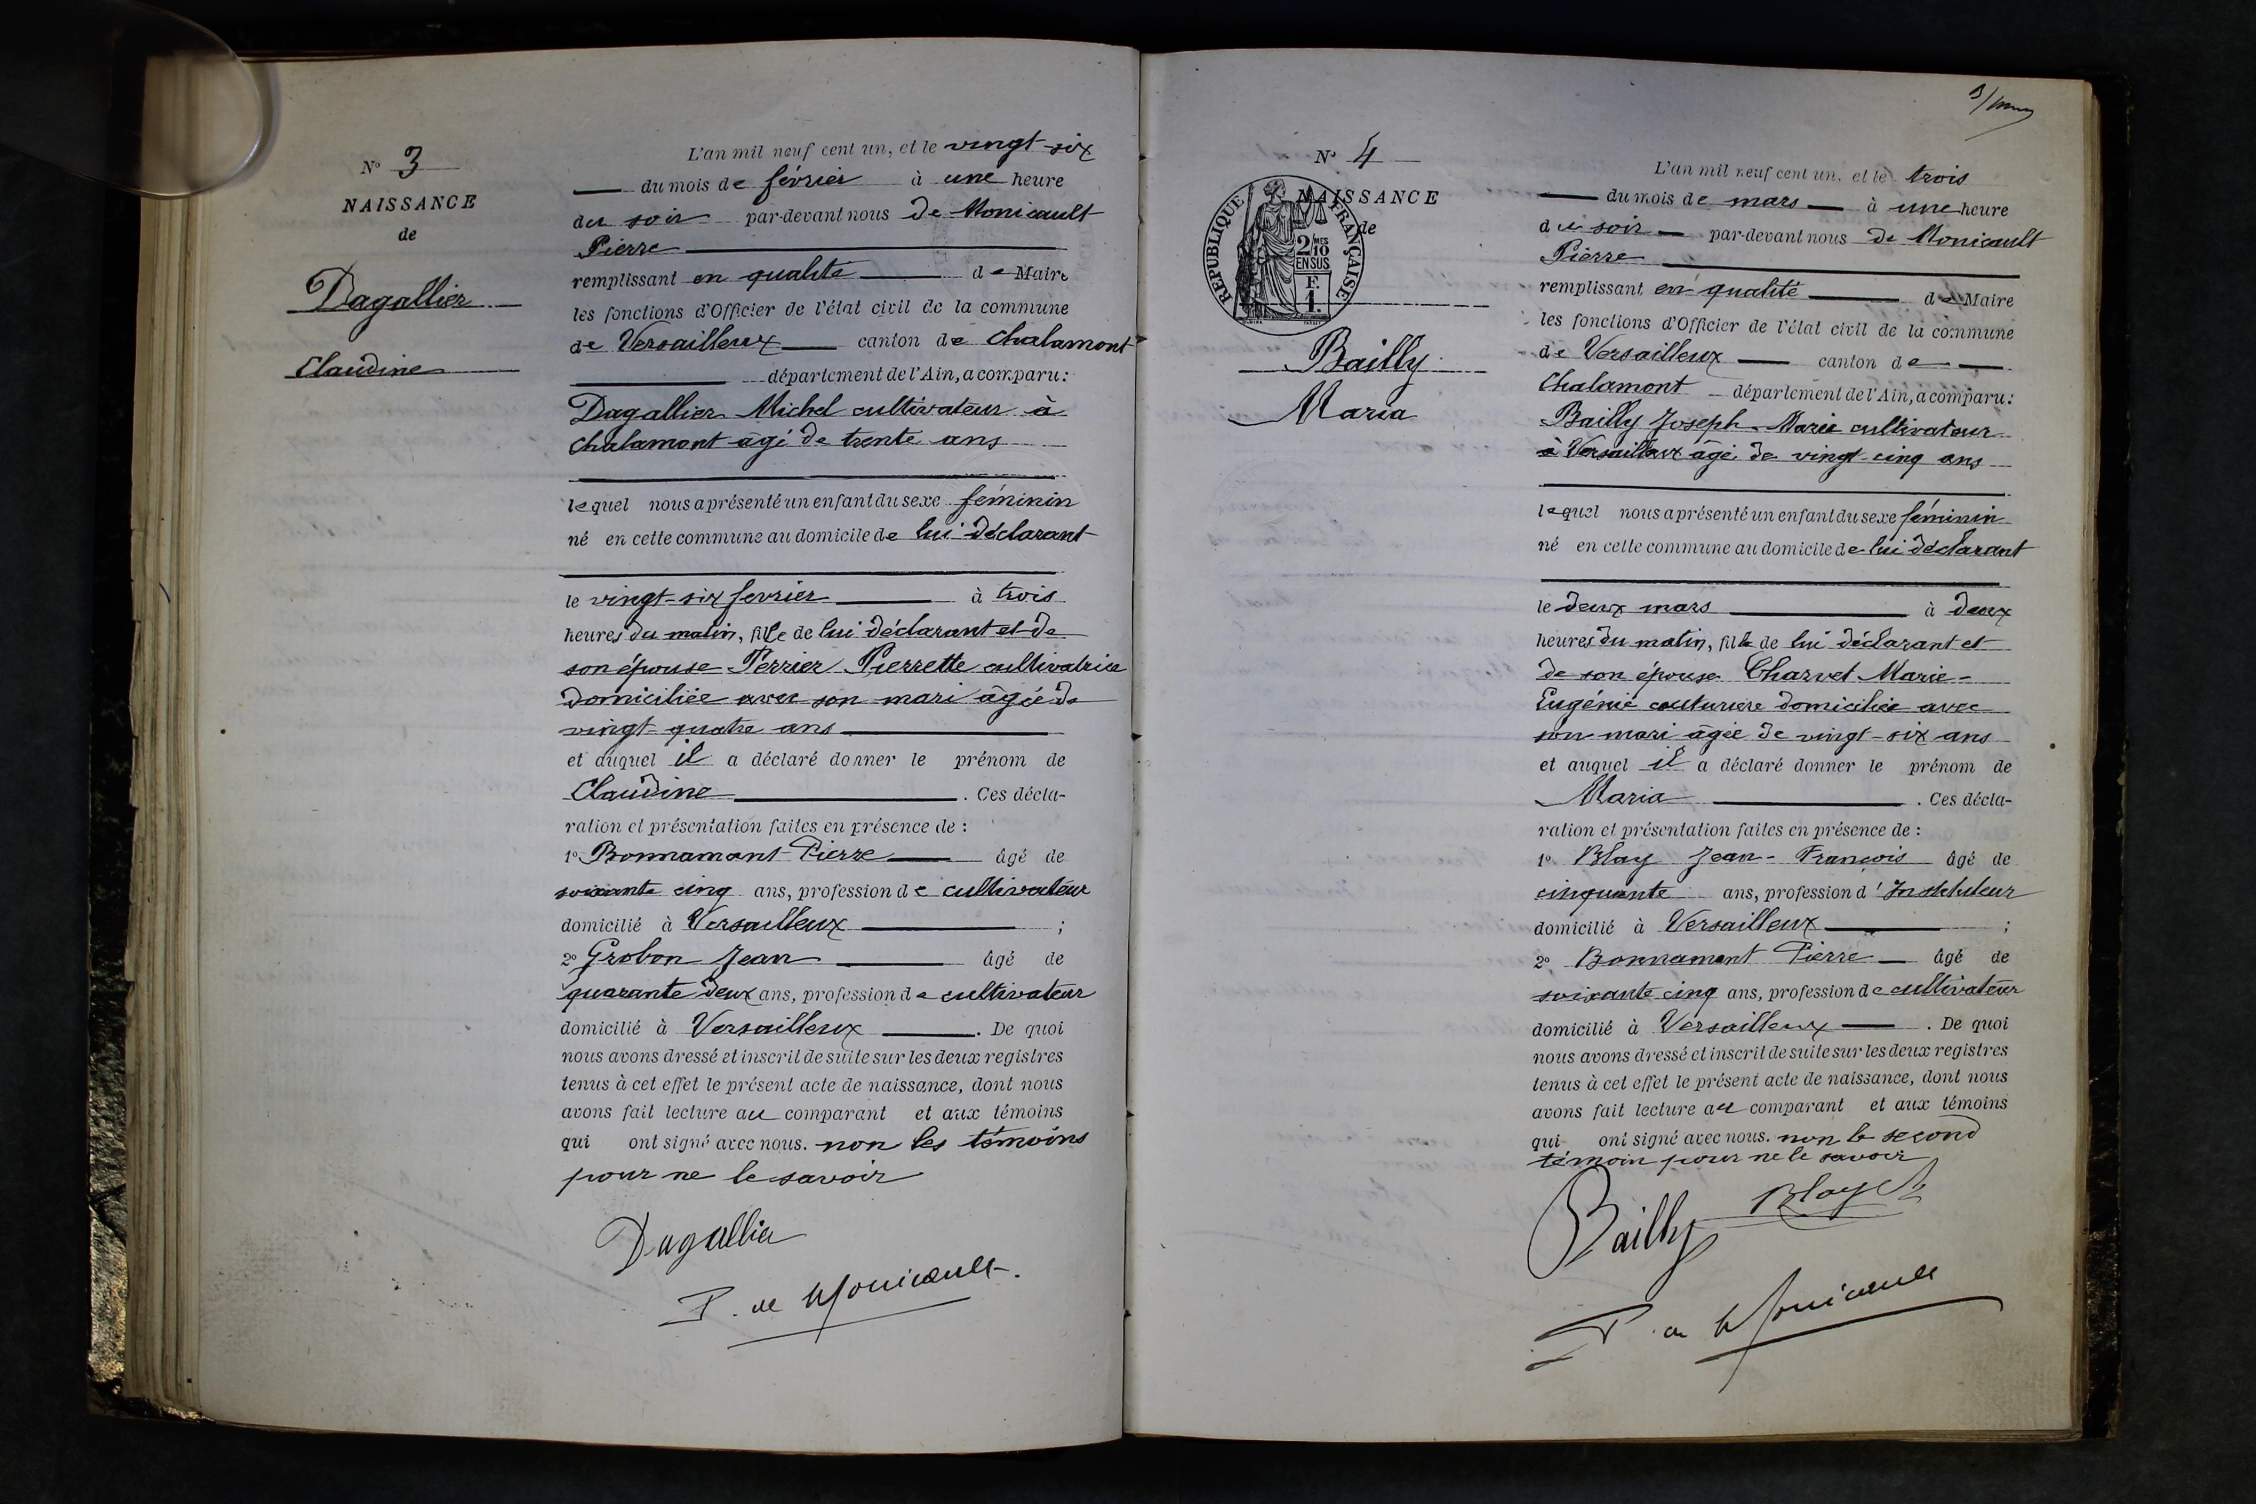 N° 3
NAISSANCE
de
Dagallier
Claudine
L'an mil neuf cent un, et le vingt-six
du mois de février à une heure
du soir par-devant nous De Monicault
Pierre
remplissant en qualité de Maire
les fonctions d'Officier de l'état civil de la commune
de Versailleux canton de Chalamont
département de l'Ain, a comparu:
Dagallier Michel cultivateur à
Chalamont âgé de trente ans
lequel nous a présenté un enfant du sexe féminin
né en cette commune au domicile de lui déclarant
le vingt-six fevrier à trois
heures du matin, fille de lui déclarant et de
son épouse Perrier Pierrette cultivatrice
domiciliée avec son mari âgée de
vingt-quatre ans
et auquel il a déclaré donner le prénom de
Claudine. Ces décla-
ration et présentation faites en présence de :
1° Bonnamant Pierre âgé de
soixante cinq ans, profession de cultivateur
domicilié à Versailleux ;
2° Grobon Jean âgé de
quarante deux ans, profession de cultivateur
domicilié à Versailleux. De quoi
nous avons dressé et inscrit de suite sur les deux registres
tenus à cet effet le présent acte de naissance, dont nous
avons fait lecture au comparant et aux témoins
qui ont signé avec nous. non les témoins
pour ne le savoir
Dagallier
P. de Monicault.
N° 4
NAISSANCE
de
RÉPUBLIQUE FRANÇAISE
2/10 MES
EN SUS
F.
1.
Bailly
Maria
L'an mil neuf cent un, et le trois
du mois de mars à une heure
du soir par-devant nous de Monicault
Pierre
remplissant en qualité de Maire
les fonctions d'Officier de l'état civil de la commune
de Versailleux canton de
Chalamont département de l'Ain, a comparu:
Bailly Joseph-Marie cultivateur
à Versailleux âgé de vingt-cinq ans
lequel nous a présenté un enfant du sexe féminin
né en cette commune au domicile de lui déclarant
le deux mars à deux
heures du matin, fille de lui déclarant et
de son épouse Charvet Marie-
Eugénie couturière domiciliée avec
son mari âgée de vingt-six ans
et auquel il a déclaré donner le prénom de
Maria. Ces décla-
ration et présentation faites en présence de :
1° Blay Jean-François âgé de
cinquante ans, profession d'Instituteur
domicilié à Versailleux ;
2° Bonnamant Pierre âgé de
soixante cinq ans, profession de cultivateur
domicilié à Versailleux. De quoi
nous avons dressé et inscrit de suite sur les deux registres
tenus à cet effet le présent acte de naissance, dont nous
avons fait lecture au comparant et aux témoins
qui ont signé avec nous. non le second
témoin pour ne le savoir
Bailly Blay
P. de Monicault